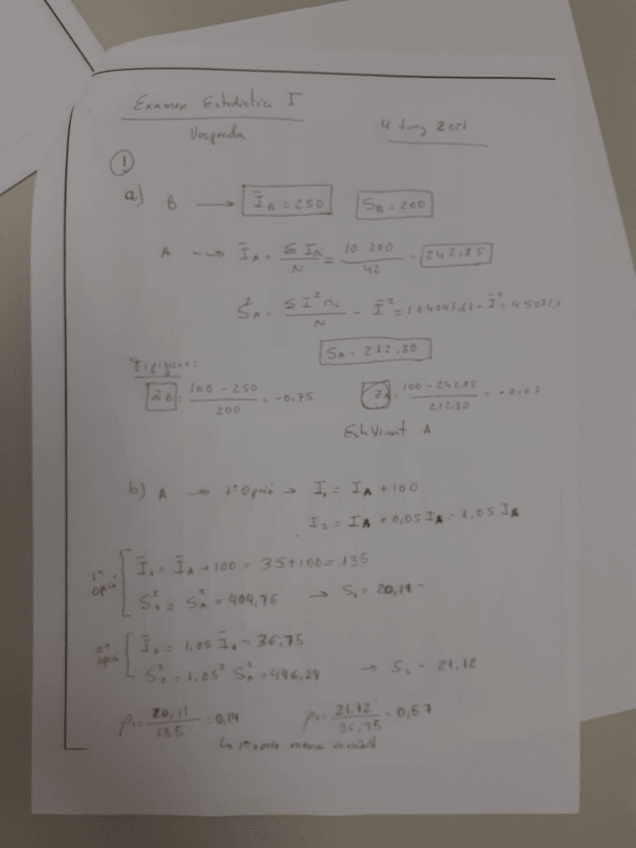 Examen Estadística I
Vesprada
4 Juny 2021
①
a) B → Ī_B = 250 S_B = 200
A → Ī_A = Σ I n_i / N = 10 200 / 42 = 242,85
S²_A = Σ I² n_i / N - Ī² = - Ī² =
S_A = 212,30
Tipificar:
z_B = 100 - 250 / 200 = -0,75 z_A = 100 - 242,85 / 212,30 = -0,67
A
b) A → 1ª Opció → I₁ = I_A + 100
I₂ = I_A + 0,05 I_A = 1,05 I_A
1ª opció Ī₁ = Ī_A + 100 = 35 + 100 = 135
S²₁ = S²_A = 404,76 → S₁ = 20,11
2ª opció Ī₂ = 1,05 Ī_A = 36,75
S²₂ = 1,05² S²_A = 446,24 → S₂ = 21,12
ρ₁ = 20,11 / 135 = 0,14 ρ₂ = 21,12 / 36,75 = 0,57
↳ 1ª opció menys